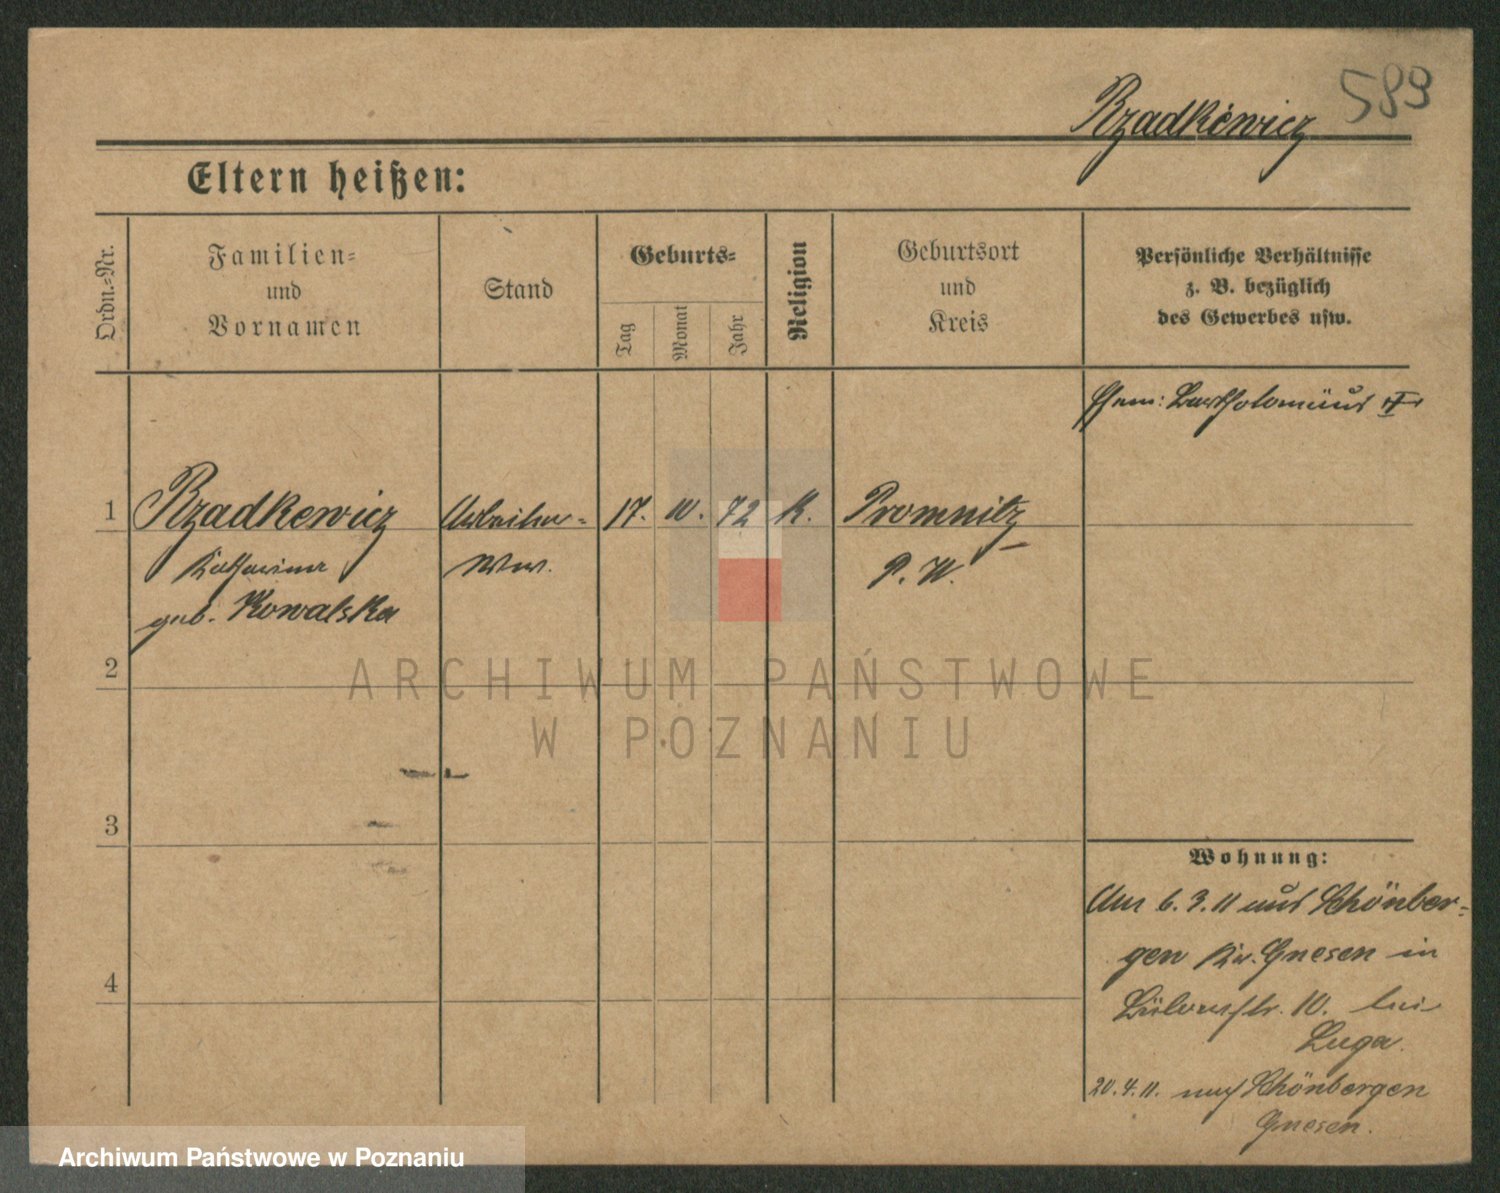 589
Rzadkiewicz
Eltern heißen:
Ordn.-Nr.
Familien-
und
Vornamen
Stand
Geburts-
Tag
Monat
Jahr
Religion
Geburtsort
und
Kreis
Persönliche Verhältnisse
z. B. bezüglich
des Gewerbes usw.
Ehem: Bartholomäus †
1
Rzadkewicz
Arbeiter-
17.
10.
72
K.
Promnitz
Katharina
Ww.
P. W.
geb. Kowalska
2
3
4
Wohnung:
Am 6.3.11 aus Schönber-
gen Kr. Gnesen in
Bülowstr. 10. bei
Luga.
20.4.11. nach Schönbergen
Gnesen.
ARCHIWUM PAŃSTWOWE
W POZNANIU
Archiwum Państwowe w Poznaniu